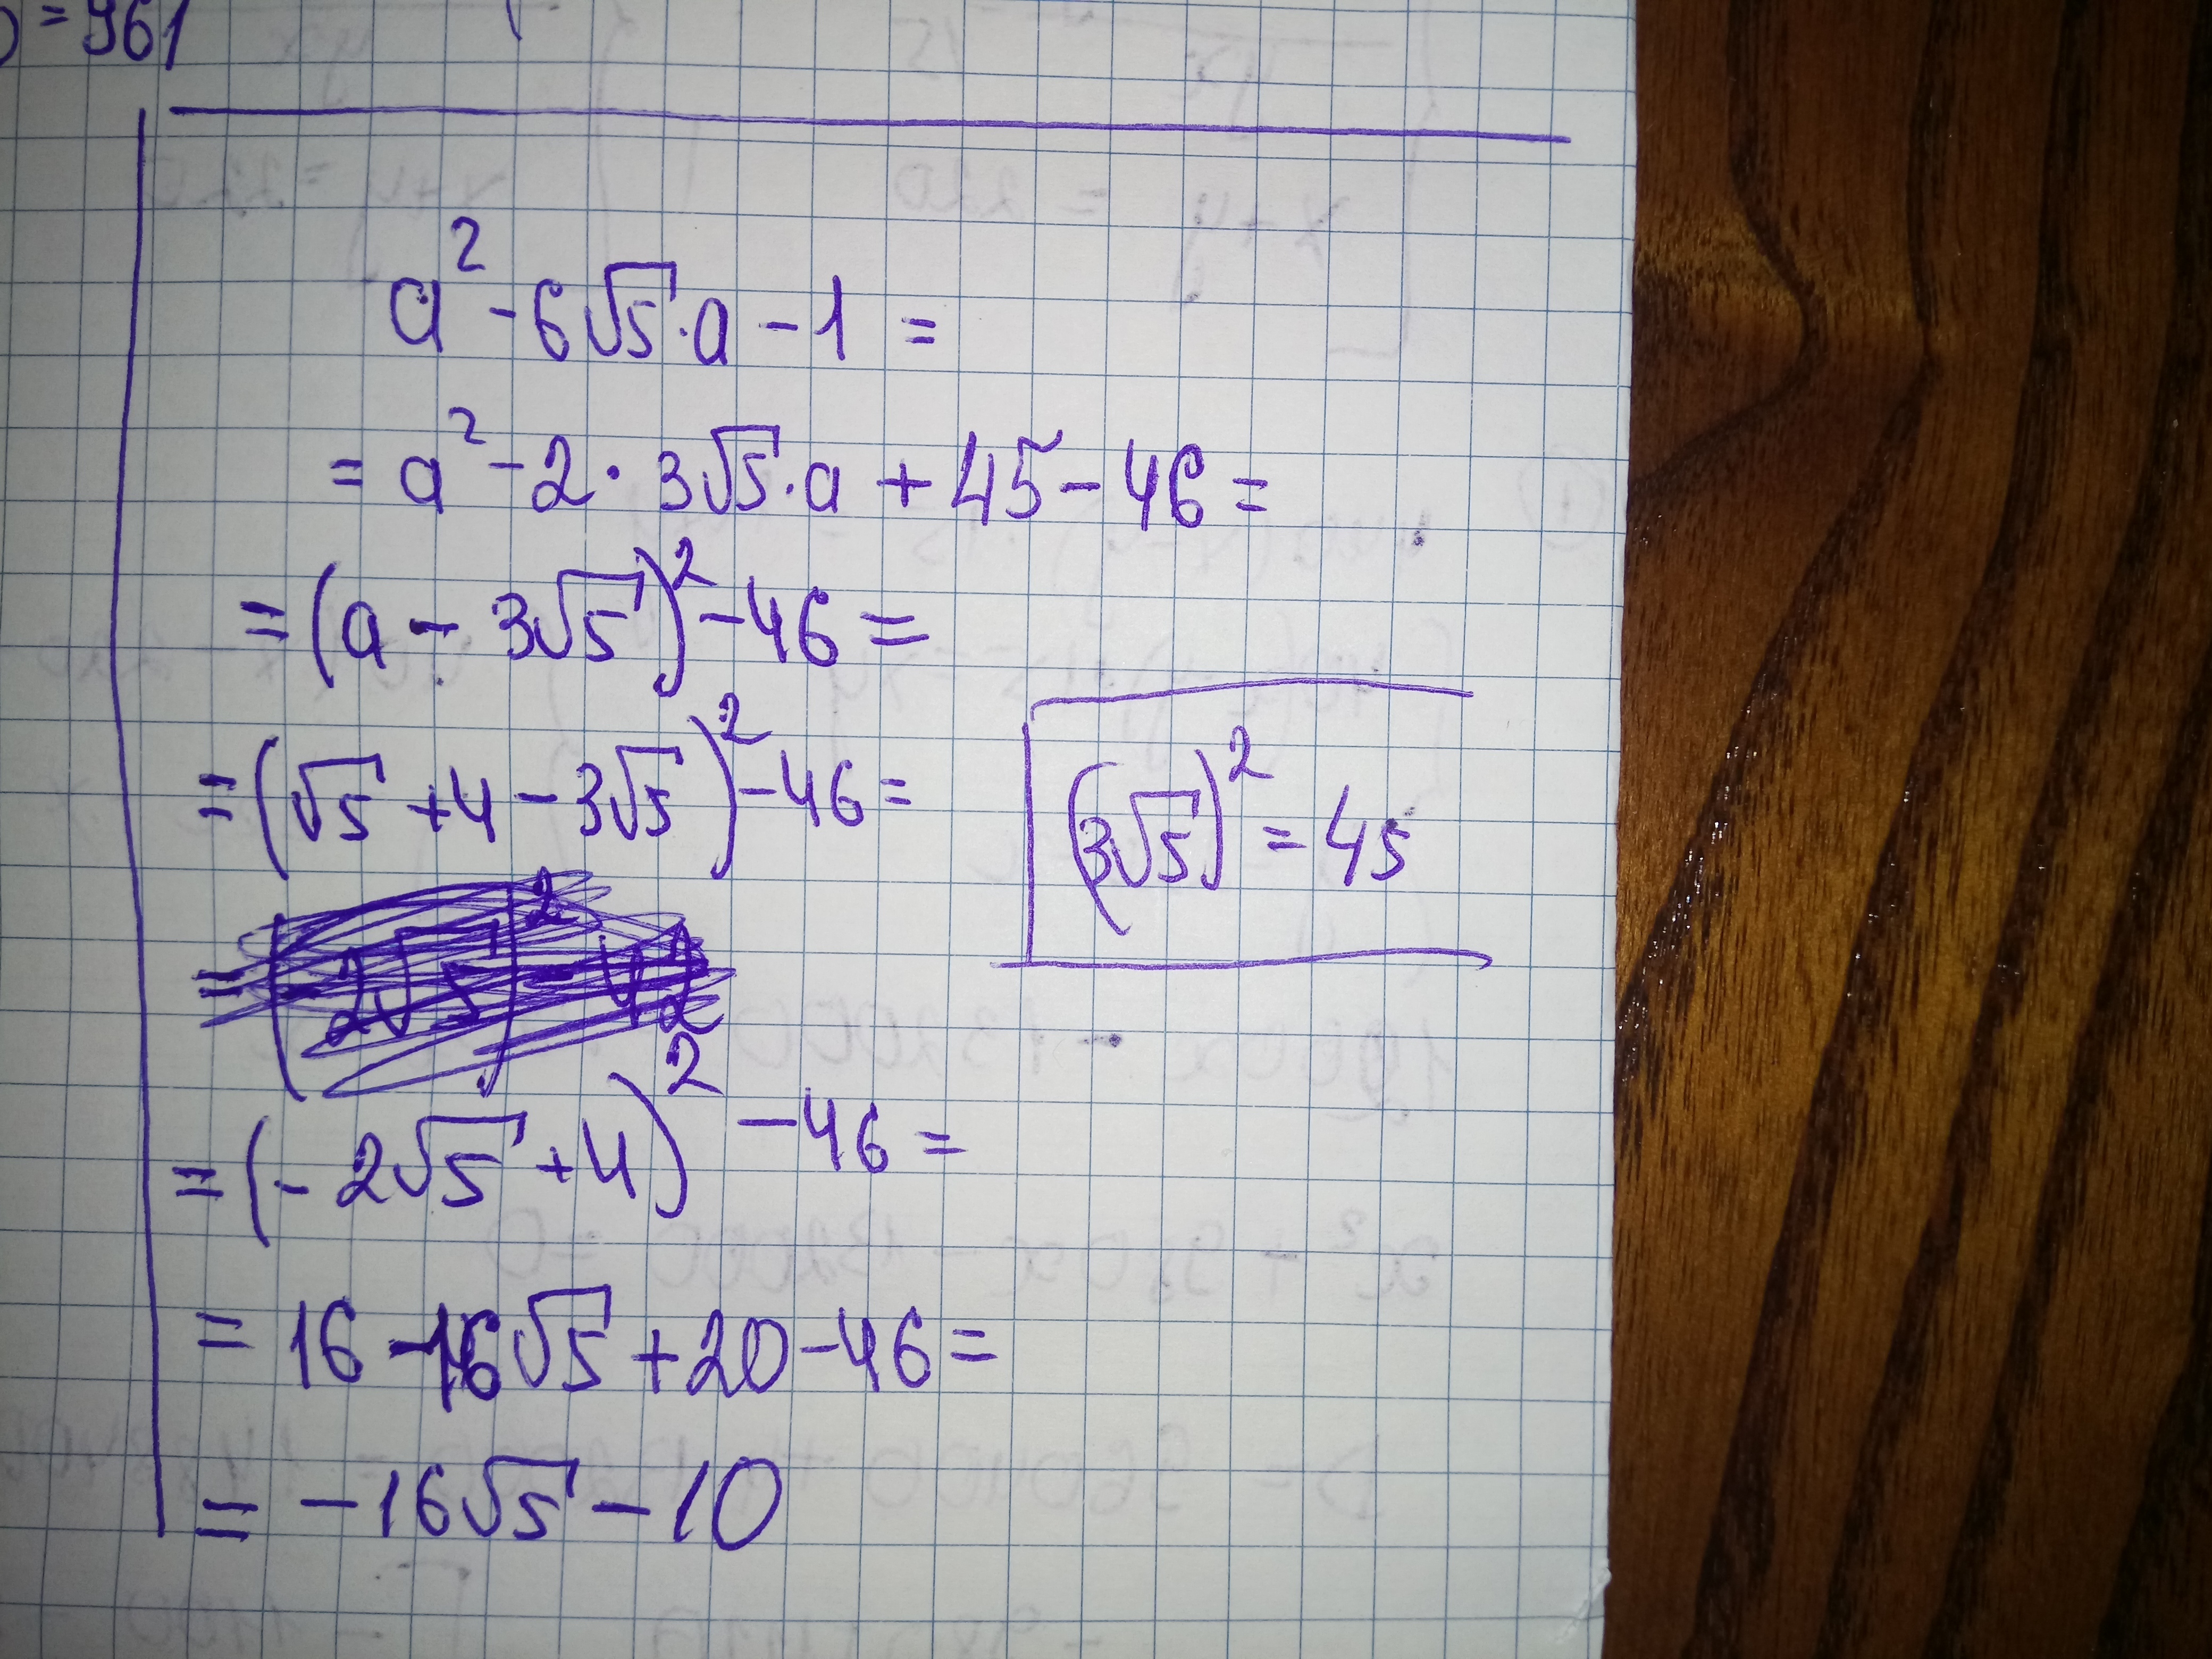 = 961
a² - 6√5·a - 1 =
= a² - 2 · 3√5·a + 45 - 46 =
= (a - 3√5)² - 46 =
= (√5 + 4 - 3√5)² - 46 =
(3√5)² = 45
= (-2√5 + 4)² - 46 =
= 16 - 16√5 + 20 - 46 =
= -16√5 - 10